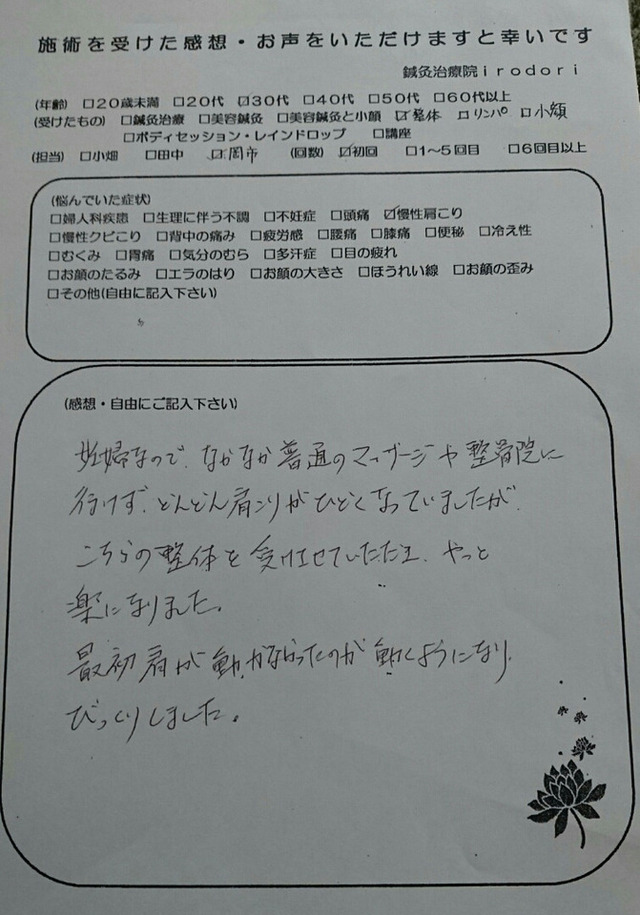 施術を受けた感想・お声をいただけますと幸いです
鍼灸治療院irodori
(年齢) □20歳未満 □20代 ☑30代 □40代 □50代 □60代以上
(受けたもの) □鍼灸治療 □美容鍼灸 □美容鍼灸と小顔 ☑整体 □リンパ □小顔
□ボディセッション・レインドロップ □講座
(担当) □小畑 □田中 ☑岡市 (回数) ☑初回 □1~5回目 □6回目以上
(悩んでいた症状)
□婦人科疾患 □生理に伴う不調 □不妊症 □頭痛 ☑慢性肩こり
□慢性クビこり □背中の痛み □疲労感 □腰痛 □膝痛 □便秘 □冷え性
□むくみ □胃痛 □気分のむら □多汗症 □目の疲れ
□お顔のたるみ □エラのはり □お顔の大きさ □ほうれい線 □お顔の歪み
□その他(自由に記入下さい)
(感想・自由にご記入下さい)
妊婦なので、なかなか普通のマッサージや整骨院に
行けず、どんどん肩こりがひどくなっていましたが、
こちらの整体を受けさせていただき、やっと
楽になりました。
最初肩が動かなかったのが動くようになり、
びっくりしました。